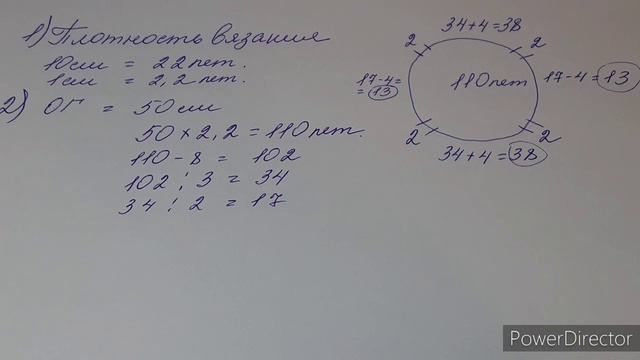 1) Плотность вязания
10см = 22 пет.
1см = 2,2 пет.
2) ОГ = 50 см
50 × 2,2 = 110 пет.
110 - 8 = 102
102 : 3 = 34
34 : 2 = 17
34+4=38
2
2
17-4=
=13
110 пет
17-4=13
2
2
34+4=38
PowerDirector